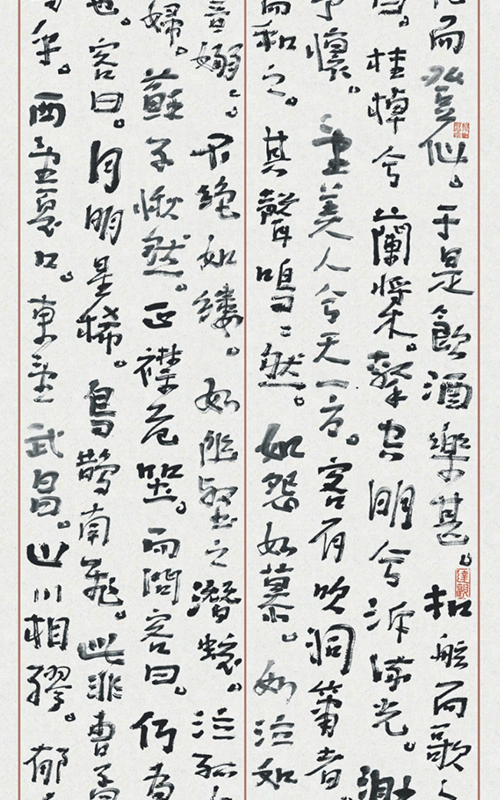 化而登仙。于是飲酒樂甚。扣舷而歌之
桂棹兮蘭槳。擊空明兮泝流光。渺
予懷。望美人兮天一方。客有吹洞簫者。
而和之。其聲嗚〻然。如怨如慕。如泣如
音嫋〻。不絕如縷。舞幽壑之潛蛟。泣孤
婦。蘇子愀然。正襟危坐。而問客曰。何為
也。客曰。月明星稀。烏鵲南飛。此非曹孟
乎。西望夏口。東望武昌。山川相繆。鬱